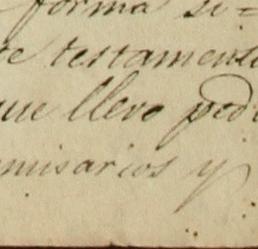 forma si=
de testamento
que llevo pedi
misarios y